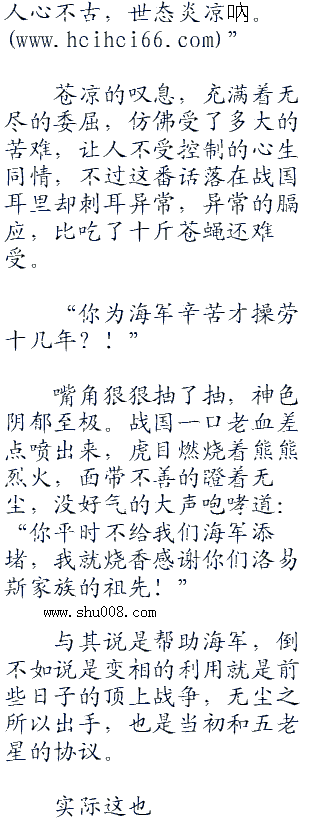 人心不古，世态炎凉呐。
(www.hcihci66.com)”
苍凉的叹息，充满着无
尽的委屈，仿佛受了多大的
苦难，让人不受控制的心生
同情，不过这番话落在战国
耳里却刺耳异常，异常的膈
应，比吃了十斤苍蝇还难
受。
“你为海军辛苦才操劳
十几年？！”
嘴角狠狠抽了抽，神色
阴郁至极。战国一口老血差
点喷出来，虎目燃烧着熊熊
烈火，面带不善的瞪着无
尘，没好气的大声咆哮道：
“你平时不给我们海军添
堵，我就烧香感谢你们洛易
斯家族的祖先！”
www.shu008.com
与其说是帮助海军，倒
不如说是变相的利用就是前
些日子的顶上战争，无尘之
所以出手，也是当初和五老
星的协议。
实际这也